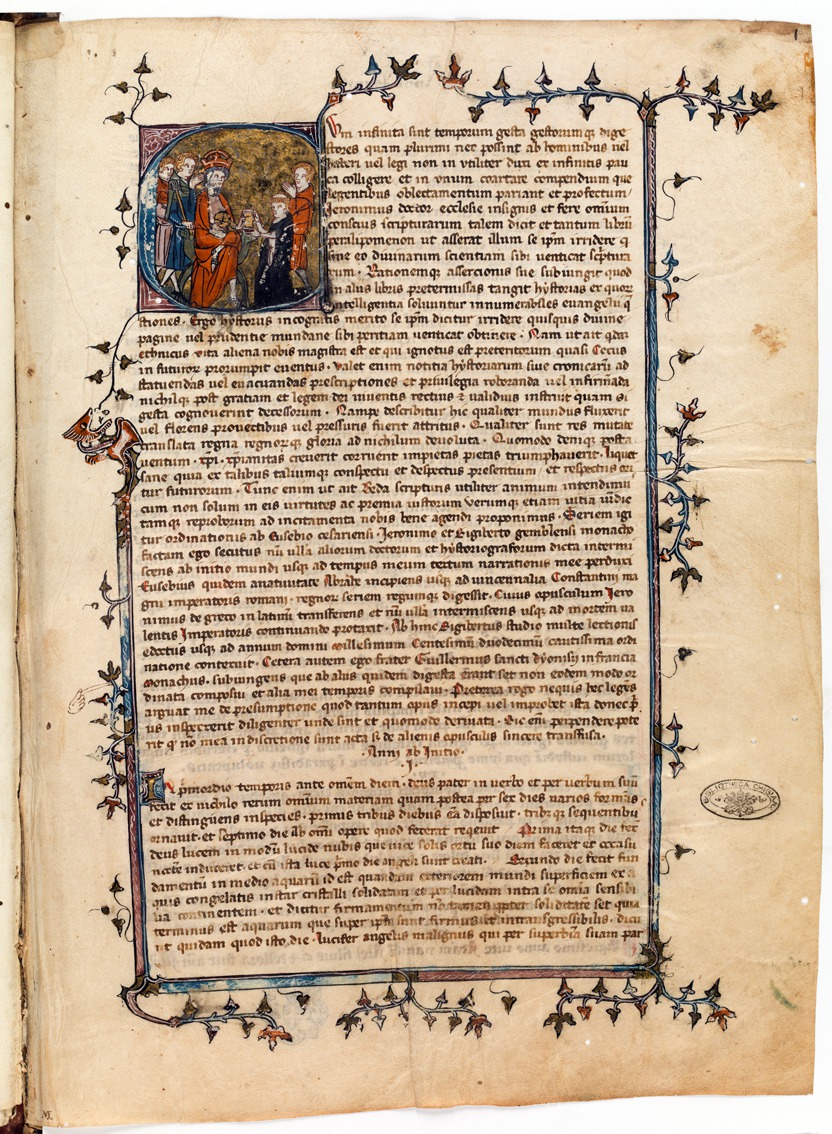 1
Cum infinita sint temporum gesta gestorumq; dige
stores quam plurimi nec possint ab hominibus uel
haberi uel legi non in vtiliter duxi ex infinitis pau
ca colligere et in vnum coartare compendium que
legentibus oblectamentum pariant et profectum/
Jeronimus doctor ecclesie insignis et fere omium̅
conscius scripturarum talem dicit et tantum libru̅
peralipomenon ut asserat illum se ip̅m irridere q
sine eo diuinarum scientiam sibi uenticat sc̅ptura
rum · Rationemq; assercionis sue subiungit quod
in aliis libris pretermissas tangit hystorias ex quor
intelligentia soluuntur innumerabiles euangelii q̅
stiones · Ergo hystoriis incognitis merito se ip̅m dicitur irridere quisquis diuine
pagine uel prudentie mundane sibi peritiam uenticat obtinere · Nam ut ait q̅da̅
ethnicus vita aliena nobis magistra est et qui ignotus est preteritorum quasi Cecus
in futuror̅ prorumpit euentus · Valet enim notitia hystoriarum siue cronicaru̅ ad
statuendas uel euacuandas prescriptiones et priuilegia roboranda uel infirmāda
nichilq; post gratiam et legem dei uiuentis rectius ⁊ validius instruit quam si
gesta cognouerint decessorum · Nampe describitur hic qualiter mundus fluxerit
uel florens prouectibus uel pressuris fuerit attritus · Qualiter sunt res mutate
translata regna regnorq; gloria ad nichilum deuoluta · Quomodo deniq; posta
uentum · xp̅i · xp̅ianitas creuerit corruerit impietas pietas triumphauerit · liquet
sane quia ex talibus taliumq; conspectu et despectus presentium/ et respectus ori
tur futurorum · Tunc enim ut ait Beda scripturis utiliter animum intendimu̅
cum non solum in eis uirtutes ac premia iustorum verumq; etiam uitia vn̅die
tamq; reproborum ad incitamenta nobis bene agendi proponimus · Seriem igi
tur ordinationis ab Eusebio cesariensi · Jeronimo et Sigiberto gemblensi monacho
factam ego secutus no̅n ulla aliorum doctorum et hystoriograforum dicta intermi
scens ab initio mundi usq; ad tempus meum textum narrationis mee perduxi
Eusebius quidem anatiuitate Abrahe incipiens usq; ad uincennalia Constantini ma
gni imperatoris romani · regnor̅ seriem regumq; digessit · Cuius opusculum Jero
nimus de greco in latinu̅ transferens et no̅n ulla intermiscens usq; ad mortem ua
lentis Imperatoris continuando protaxit · Ab hinc Sigibertus studio multe lectionis
edoctus usq; ad annum domini Millesimum Centesimu̅ duodecimu̅ cautissima ordi
natione contexuit · Cetera autem ego frater Guillermus sancti dyonisij in francia
Monachus, subiungens que ab aliis quidem digesta era̅nt set non eodem modo or
dinata composui et alia mei temporis compilaui · Preterea rogo nequis hec legens
arguat me de presumptione quod tantum opus incepi uel improbet ista donec p̅
us inspexerit diligenter unde sint et quomodo deriuata · Sic eni̅ perpendere pote
rit q̅ no̅ mea indiscretione sunt acta s̅ de alienis opusculis sincere transfusa ·
· Anni ab Initio ·
· I ·
IN p̅mordio temporis ante omne̅m diem · deus pater in verbo et per verbum suu̅
fecit ex nichilo rerum omium̅ materiam quam postea per sex dies varios formās
et distinguens in species · primus tribus diebus ea̅ disposuit · tribq; sequentibu
ornauit · et septimo die ab omi̅ opere quod fecerat requieuit Prima itaq; die fec
deus lucem in modu̅ lucide nubis que uice solis ortu suo diem faceret et occasu
nocte̅ induceret · et cu̅ ista luce p̅mo die angeli sunt creati · Secundo die fecit fir
damentu̅ in medio aquaru̅ id est quandam exteriorem mundi superficiem ex a
quis congelatis instar cristalli solidatam et perlucidam intra se omia̅ sensibi
lia continentem · et dicitur firmamentum no̅ tantum propter soliditate̅ set quia
terminus est aquarum que super ip̅m sunt firmus et intransgressibilis · dicu
nt quidam quod isto die · lucifer angelus malignus qui per superbi̅a suam par
BIBLIOTHECA CHISIANA